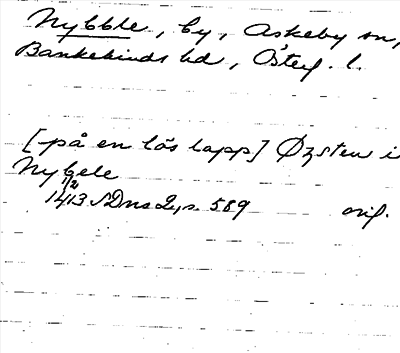 Nybble, by, Askeby sn,
Bankekinds hd, Österg. l.
[på en lös lapp] Øzsten i
Nybele
1/2
1413 SDns 2, s. 589 orig.